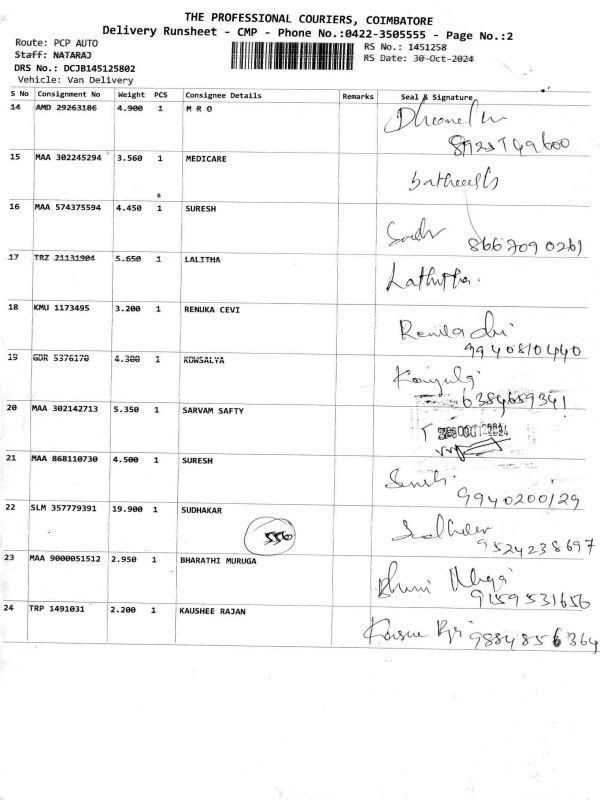 THE PROFESSIONAL COURIERS, COIMBATORE
Delivery Runsheet - CMP - Phone No.:0422-3505555 - Page No.:2
Route: PCP AUTO
RS No.: 1451258
Staff: NATARAJ
RS Date: 30-Oct-2024
DRS No.: DCJB145125802
Vehicle: Van Delivery
S No Consignment No Weight PCS Consignee Details Remarks Seal & Signature
14 AMD 29263186 4.900 1 M R O
15 MAA 302245294 3.560 1 MEDICARE
16 MAA 574375594 4.450 1 SURESH
8667090261
17 TRZ 21131904 5.650 1 LALITHA
Lathitha.
18 KMU 1173495 3.200 1 RENUKA CEVI
9940810440
19 GDR 5376170 4.300 1 KOWSALYA
6384659341
20 MAA 302142713 5.350 1 SARVAM SAFTY
21 MAA 868110730 4.500 1 SURESH
9940200129
22 SLM 357779391 19.900 1 SUDHAKAR
550
9524238697
23 MAA 9000051512 2.950 1 BHARATHI MURUGA
9159531656
24 TRP 1491031 2.200 1 KAUSHEE RAJAN
9884856364